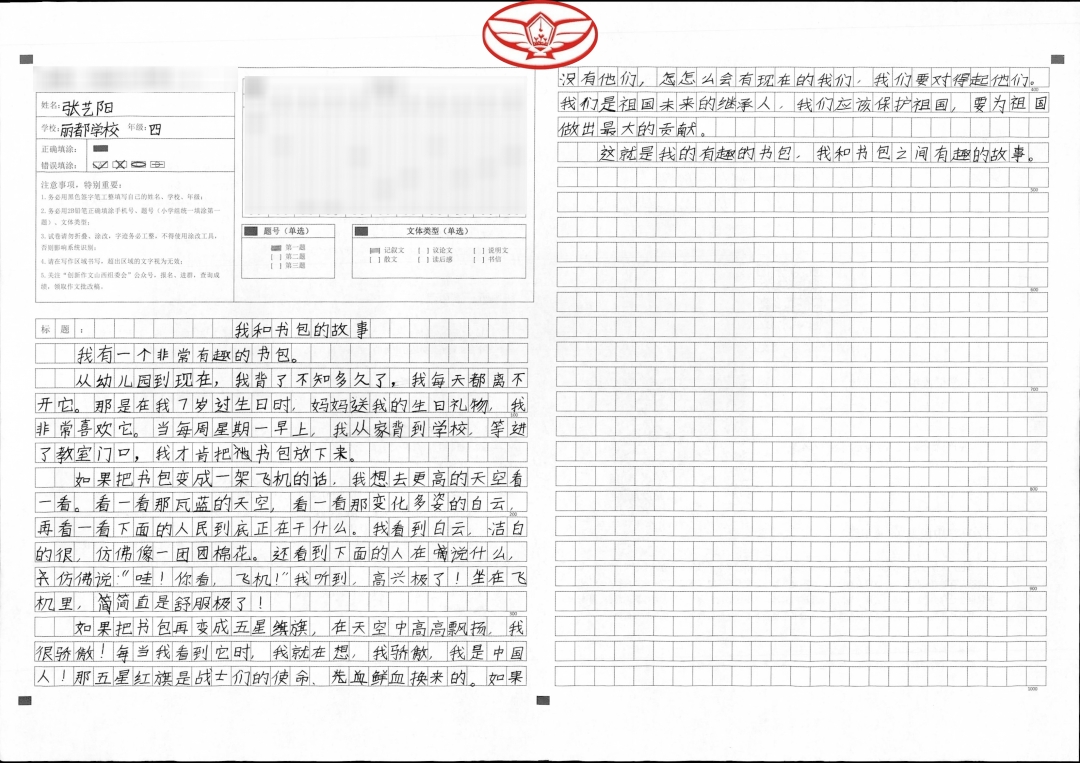 姓名：张艺阳
学校：丽都学校 年级：四
正确填涂：
错误填涂：
注意事项，特别重要：
1.务必用黑色签字笔工整填写自己的姓名、学校、年级；
2.务必用2B铅笔正确填涂手机号、题号（小学组统一填涂第一
题）、文体类型；
3.试卷请勿折叠、涂改，字迹务必工整，不得使用涂改工具，
否则影响系统识别；
4.请在写作区域书写，超出区域的文字视为无效；
5.关注“创新作文山西组委会”公众号，报名、进群、查询成
绩，领取作文批改稿。
题号（单选）
第一题
[ ] 第二题
[ ] 第三题
文体类型（单选）
记叙文 [ ] 议论文 [ ] 说明文
[ ] 散文 [ ] 读后感 [ ] 书信
标题： 我和书包的故事
我有一个非常有趣的书包。
从幼儿园到现在，我背了不知多久了，我每天都离不
开它。那是在我7岁过生日时，妈妈送我的生日礼物，我
100
非常喜欢它。当每周星期一早上，我从家背到学校，等进
了教室门口，我才肯把书包放下来。
如果把书包变成一架飞机的话，我想去更高的天空看
一看。看一看那瓦蓝的天空，看一看那变化多姿的白云，
200
再看一看下面的人民到底正在干什么。我看到白云，洁白
的很，仿佛像一团团棉花。还看到下面的人在说什么，
仿佛说：“哇！你看，飞机！”我听到，高兴极了！坐在飞
机里，简直是舒服极了！
300
如果把书包再变成五星旗，在天空中高高飘扬，我
很骄傲！每当我看到它时，我就在想，我骄傲，我是中国
人！那五星红旗是战士们的使命、先血鲜血换来的。如果
没有他们，怎么会有现在的我们，我们要对得起他们。
400
我们是祖国未来的继承人，我们应该保护祖国，要为祖国
做出最大的贡献。
这就是我的有趣的书包，我和书包之间有趣的故事。
500
600
700
800
900
1000